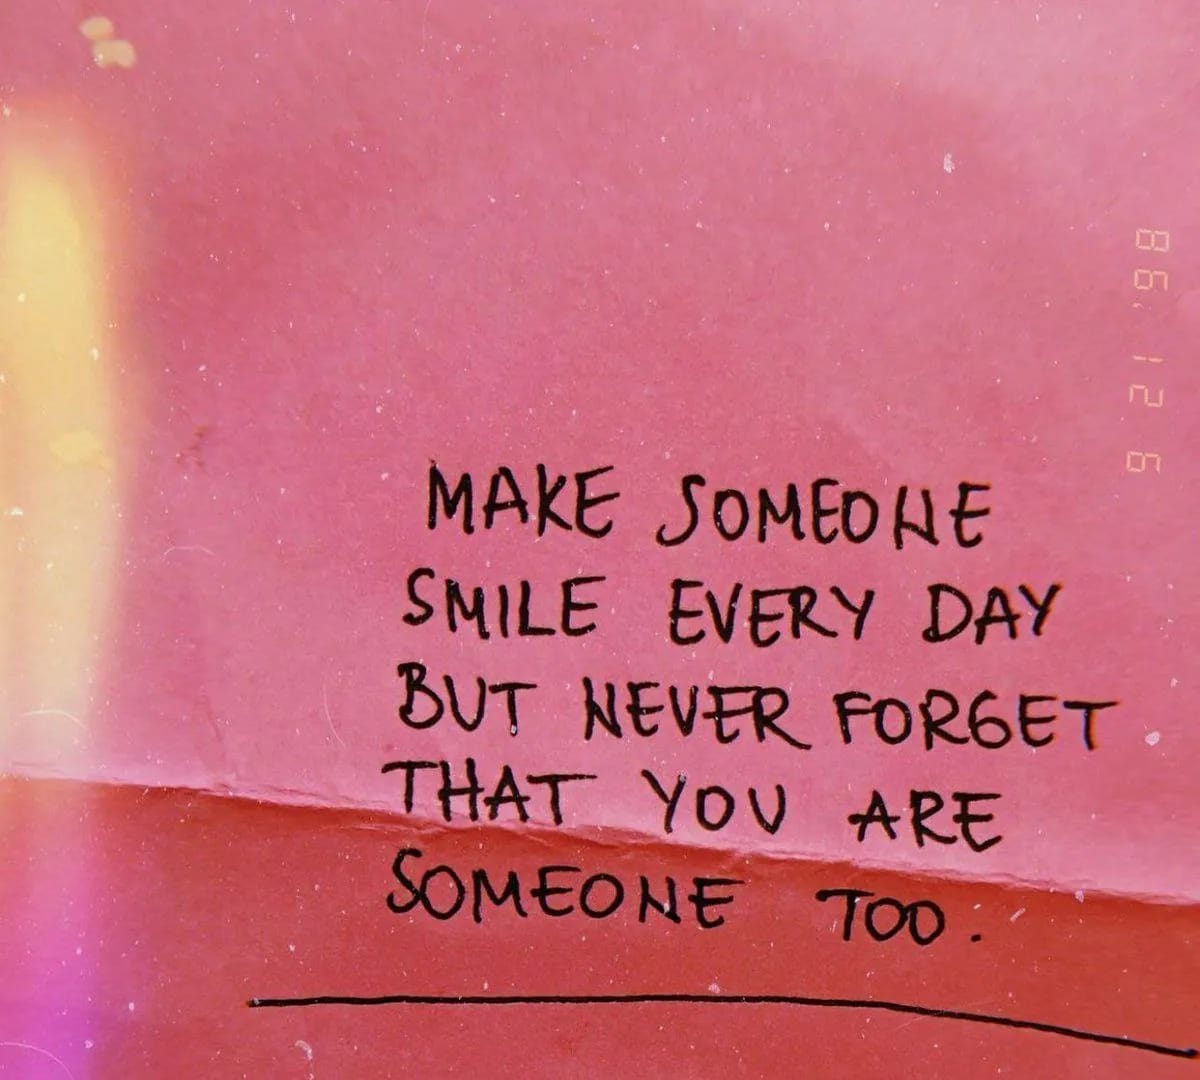 MAKE SOMEONE
SMILE EVERY DAY
BUT NEVER FORGET
THAT YOU ARE
SOMEONE TOO.
86.' 12 6